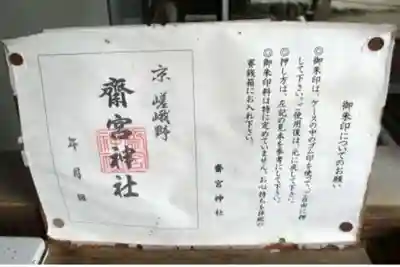 御朱印についてのお願い
◎御朱印は、ケースの中のゴム印を使って、ご自由に押
して下さい。ご使用後は、元に戻して下さい。
◎押し方は、左記の見本を参考にして下さい。
◎御朱印料は特に定めていません。お心持ちを拝殿の
賽銭箱にお入れ下さい。
齋宮神社
京 嵯峨野
齋宮神社
年 月 日